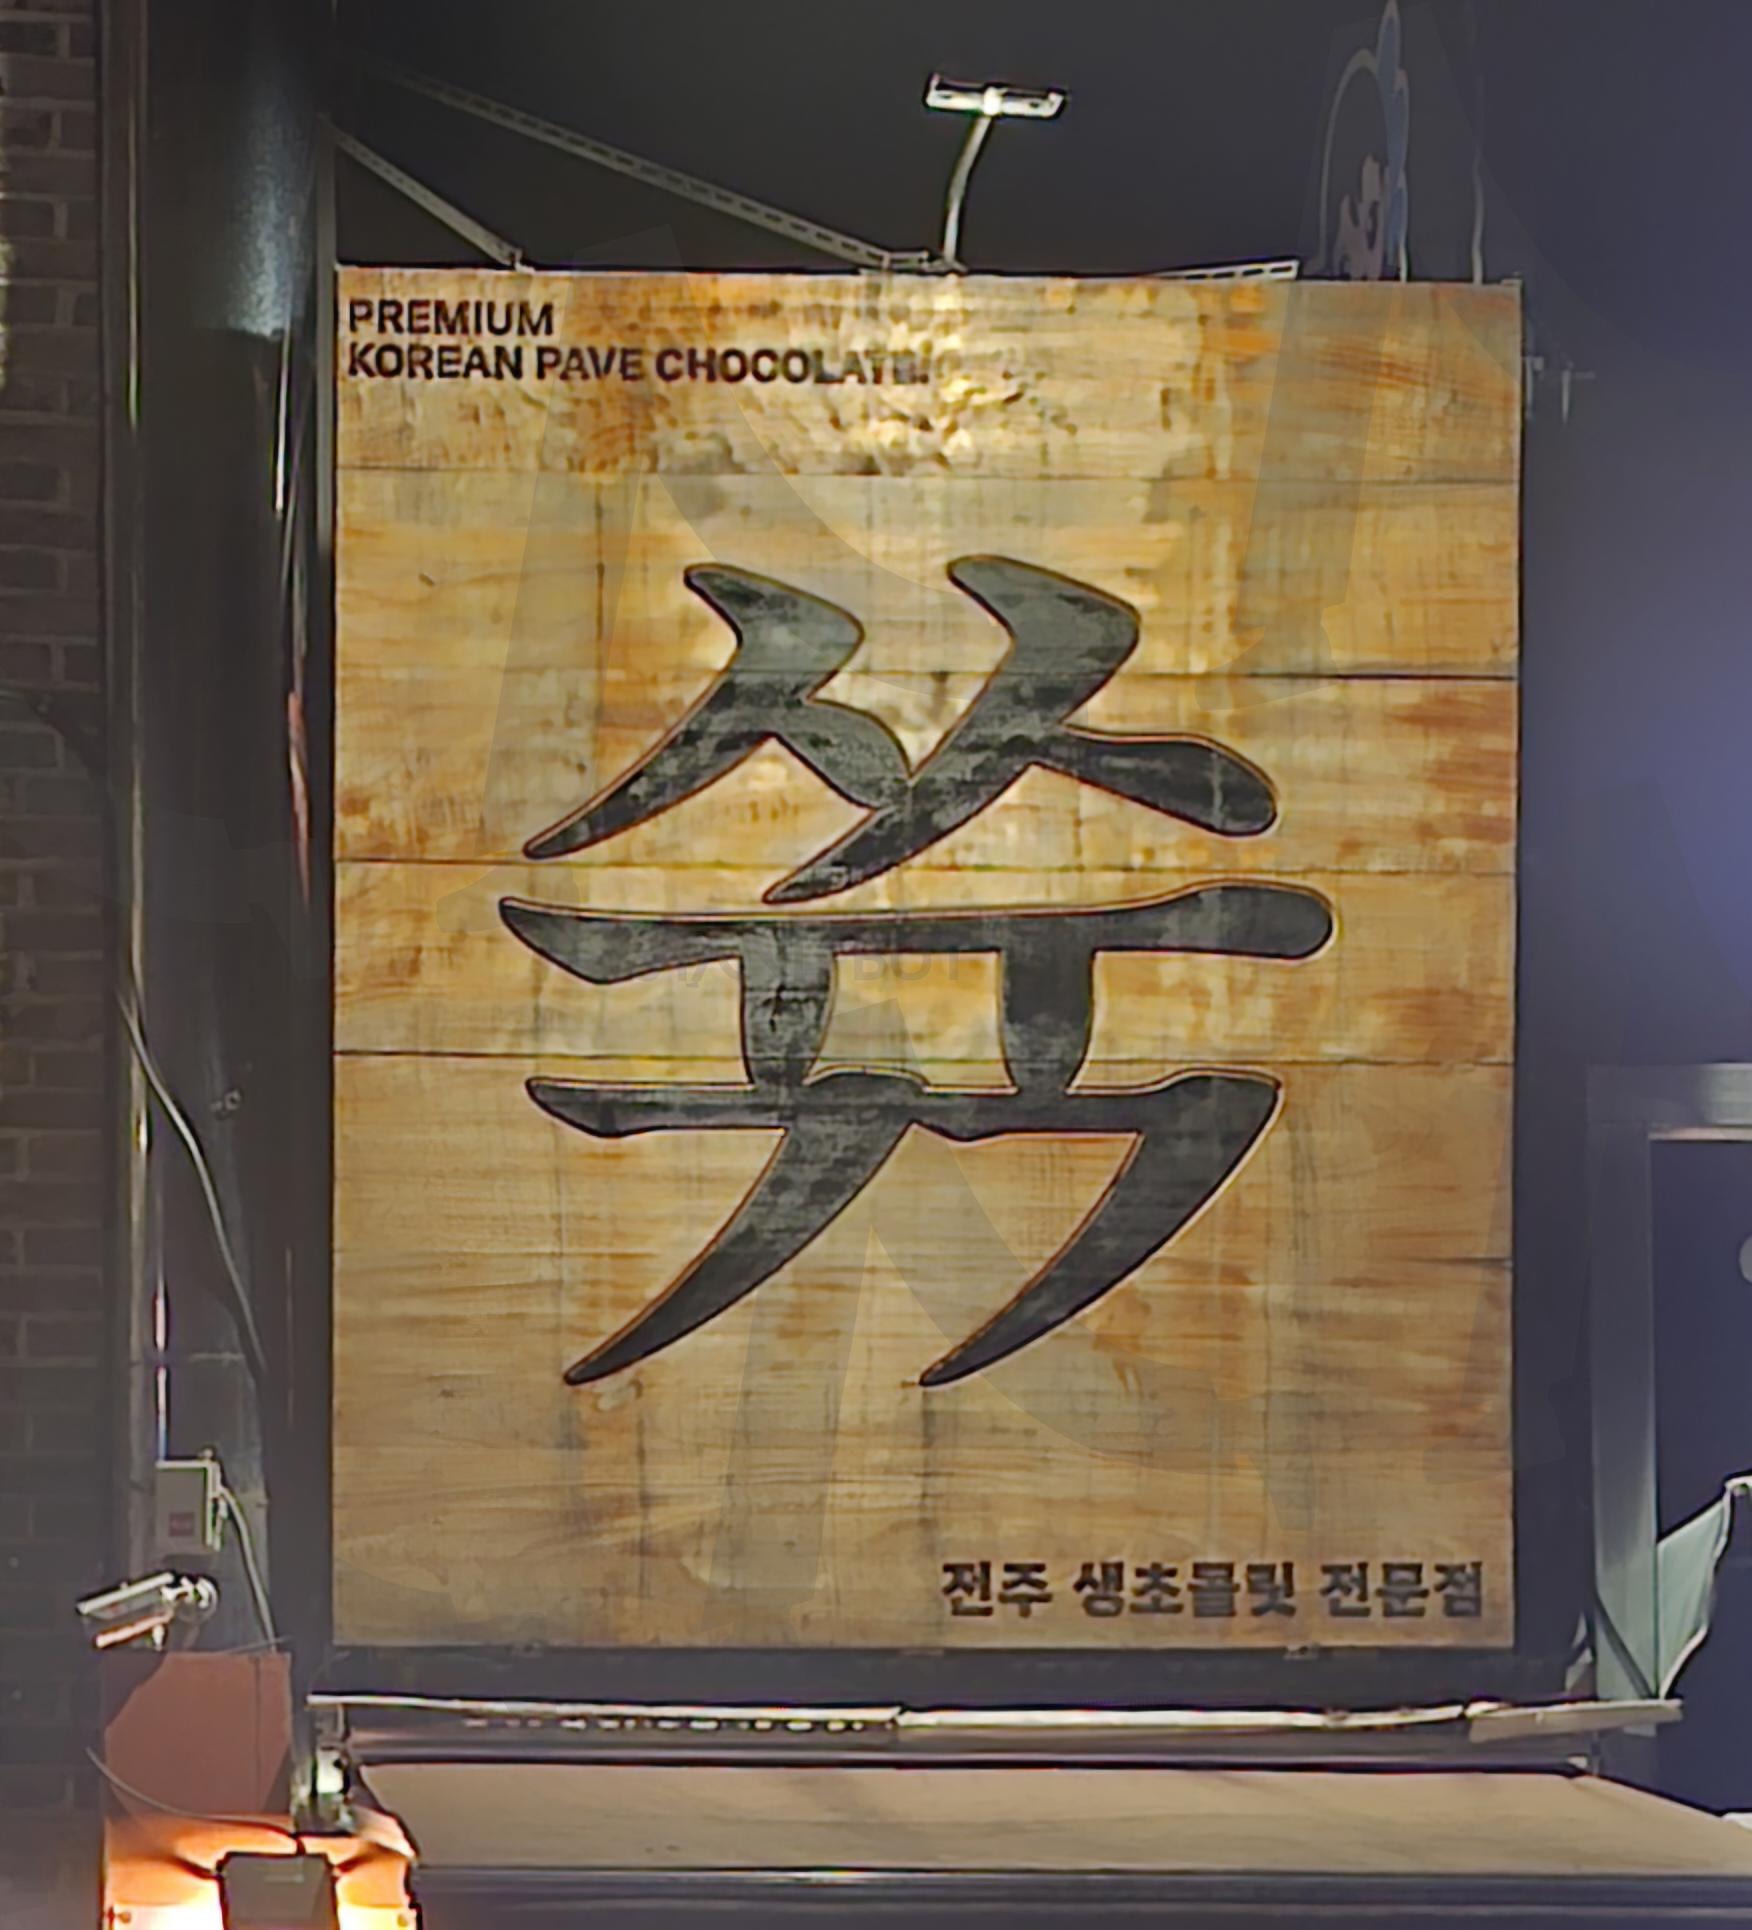 PREMIUM
KOREAN PAVE CHOCOLATE.
쓖
전주 생초콜릿 전문점